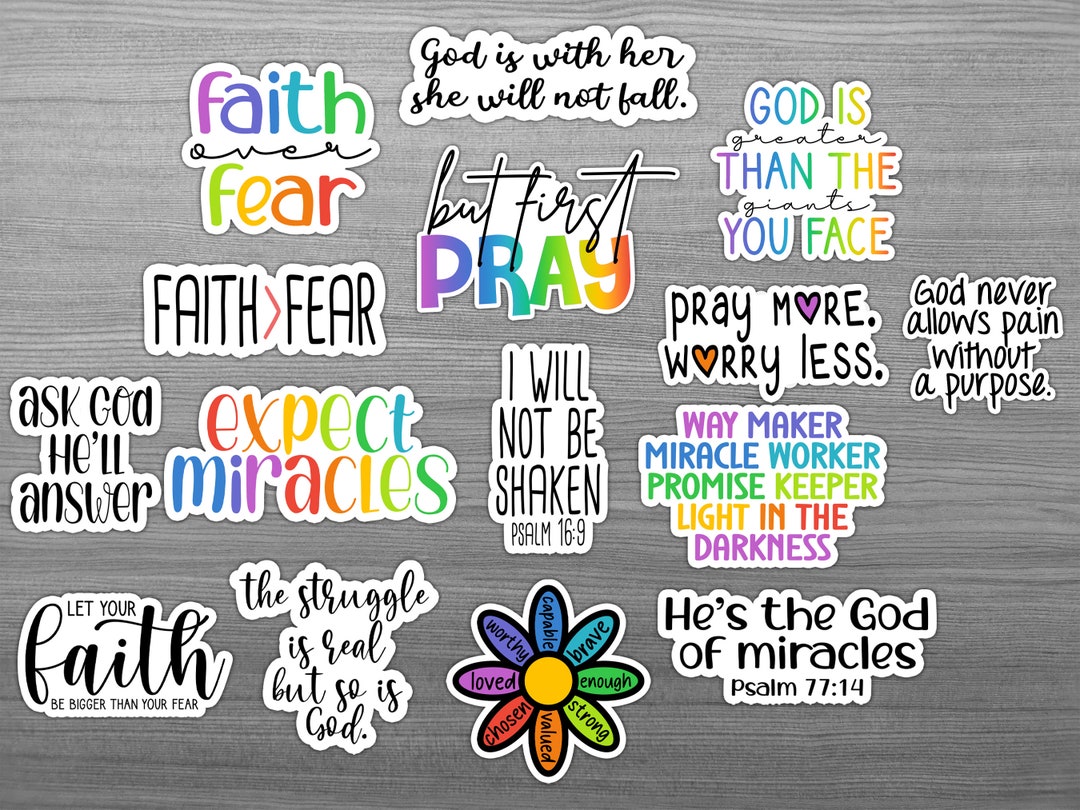 God is with her
she will not fall.
faith
over
fear
GOD IS
greater
THAN THE
giants
YOU FACE
but first
PRAY
FAITH>FEAR
PRAY MORE.
WORRY LESS.
God never
allows pain
without
a purpose.
ASK GOD
HE'LL
answer
expect
miracles
I WILL
NOT BE
SHAKEN
PSALM 16:9
WAY MAKER
MIRACLE WORKER
PROMISE KEEPER
LIGHT IN THE
DARKNESS
LET YOUR
faith
BE BIGGER THAN YOUR FEAR
the struggle
is real
but so is
God.
capable
brave
enough
strong
valued
chosen
loved
worthy
He's the God
of miracles
Psalm 77:14